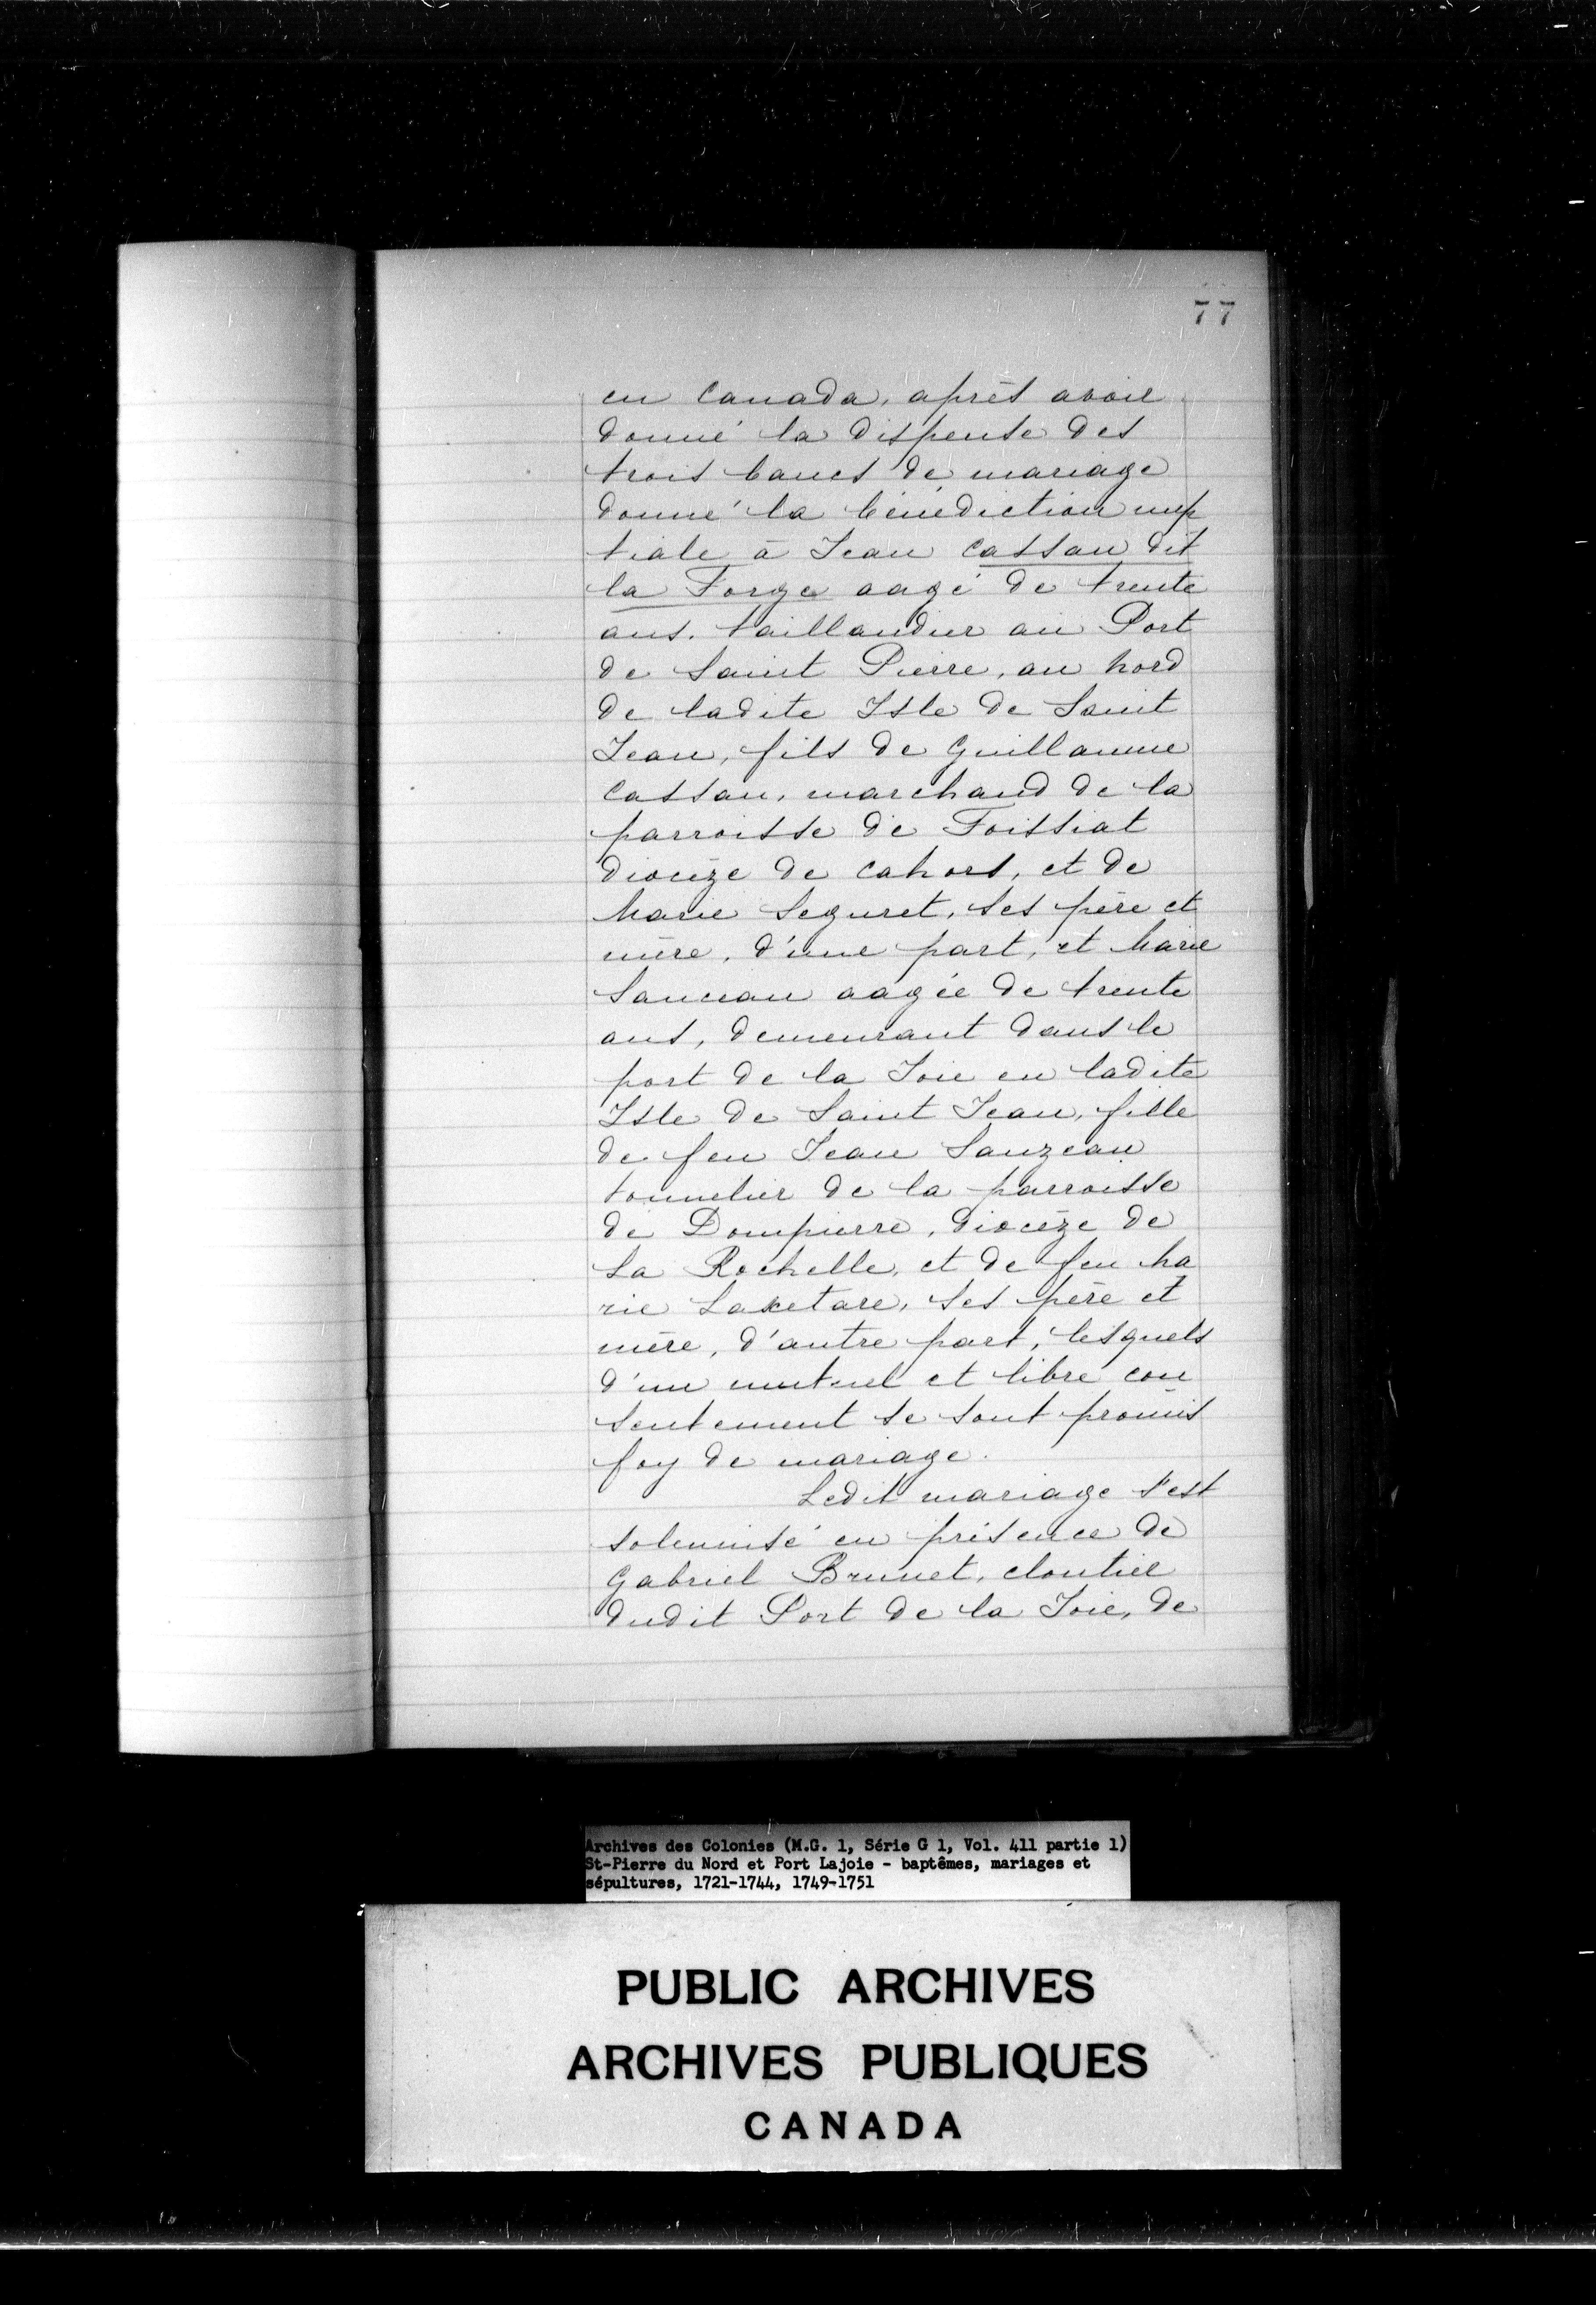 77
en Canada, après avoir
donné la dispense des
trois bancs de mariage
donné la bénédiction nup
tiale à Jean Cassan dit
la Forge aagé de trente
ans, taillandier au Port
de Saint Pierre, au nord
de ladite Isle de Saint
Jean, fils de Guillaume
Cassan, marchand de la
parroisse de Foissiat
diocèze de Cahors, et de
Marie Seguret, ses père et
mère, d'une part, et Marie
Sanceau aagée de trente
ans, demeurant dans le
port de la Joie en ladite
Isle de Saint Jean, fille
de feu Jean Sauzeau
tonnelier de la parroisse
de Dompierre, diocèze de
La Rochelle, et de feu Ma
rie Laketare, ses père et
mère, d'autre part, lesquels
d'un mutuel et libre con
sentement se sont promis
foy de mariage.
Ledit mariage s'est
solemnisé en présence de
Gabriel Brunet, cloutier
dudit Port de la Joie, de
Archives des Colonies (M.G. 1, Série G 1, Vol. 411 partie 1)
St-Pierre du Nord et Port Lajoie - baptêmes, mariages et
sépultures, 1721-1744, 1749-1751
PUBLIC ARCHIVES
ARCHIVES PUBLIQUES
CANADA